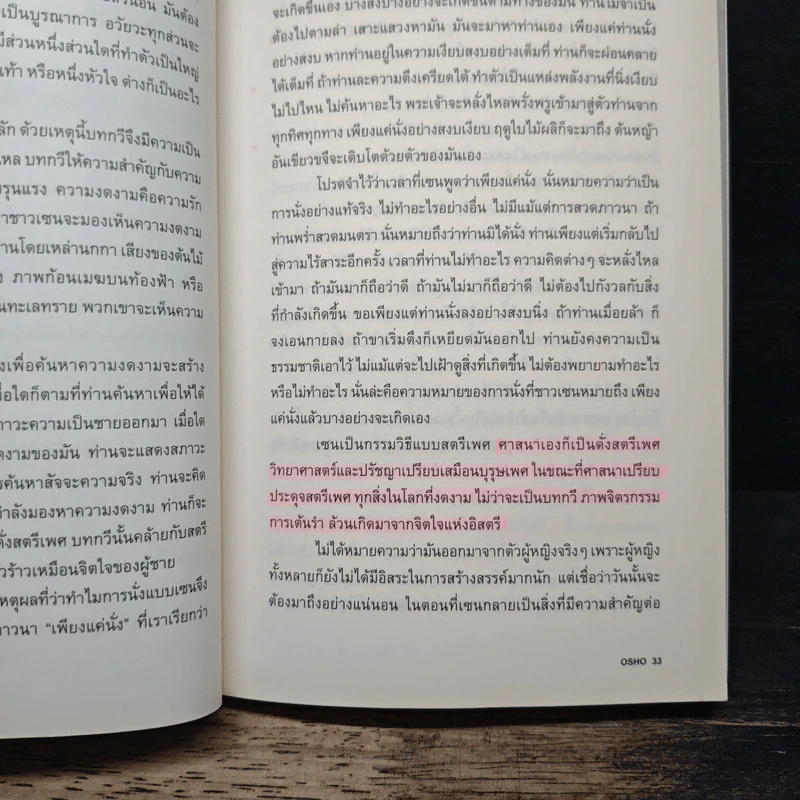 เป็นบูรณาการ อวัยวะทุกส่วนจะ
มีส่วนหนึ่งส่วนใดที่ทำตัวเป็นใหญ่
เท้า หรือหนึ่งหัวใจ ต่างก็เป็นอะไร
ลัก ด้วยเหตุนี้บทกวีจึงมีความเป็น
ไหล บทกวีให้ความสำคัญกับความ
รุนแรง ความงดงามคือความรัก
าชาวเซนจะมองเห็นความงดงาม
านโดยเหล่านกกา เสียงของต้นไม้
ภาพก้อนเมฆบนท้องฟ้า หรือ
นทะเลทราย พวกเขาจะเห็นความ
งเพื่อค้นหาความงดงามจะสร้าง
มื่อใดก็ตามที่ท่านค้นหาเพื่อให้ได้
าวะความเป็นชายออกมา เมื่อใด
ดงามของมัน ท่านจะแสดงสภาวะ
รค้นหาสัจจะความจริง ท่านจะคิด
กำลังมองหาความงดงาม ท่านก็จะ
ดั่งสตรีเพศ บทกวีนั้นคล้ายกับสตรี
วร้าวเหมือนจิตใจของผู้ชาย
หตุผลที่ว่าทำไมการนั่งแบบเซนจึง
าวนา “เพียงแค่นั่ง” ที่เราเรียกว่า
จะเกิดขึ้นเอง บางสิ่งบางอย่างจะเกิดขึ้นตามทางของมัน ท่านไม่จำเป็น
ต้องไปตามล่า เสาะแสวงหามัน มันจะมาหาท่านเอง เพียงแค่ท่านนั่ง
อย่างสงบ หากท่านอยู่ในความเงียบสงบอย่างเต็มที่ ท่านก็จะผ่อนคลาย
ได้เต็มที่ ถ้าท่านละความตึงเครียดได้ ทำตัวเป็นแหล่งพลังงานที่นิ่งเงียบ
ไม่ไปไหน ไม่ค้นหาอะไร พระเจ้าจะหลั่งไหลพรั่งพรูเข้ามาสู่ตัวท่านจาก
ทุกทิศทุกทาง เพียงแค่นั่งอย่างสงบเงียบ ฤดูใบไม้ผลิก็จะมาถึง ต้นหญ้า
อันเขียวขจีจะเติบโตด้วยตัวของมันเอง
โปรดจำไว้ว่าเวลาที่เซนพูดว่าเพียงแค่นั่ง นั่นหมายความว่าเป็น
การนั่งอย่างแท้จริง ไม่ทำอะไรอย่างอื่น ไม่มีแม้แต่การสวดภาวนา ถ้า
ท่านพร่ำสวดมนตรา นั่นหมายถึงว่าท่านมิได้นั่ง ท่านเพียงแต่เริ่มกลับไป
สู่ความไร้สาระอีกครั้ง เวลาที่ท่านไม่ทำอะไร ความคิดต่างๆ จะหลั่งไหล
เข้ามา ถ้ามันมาก็ถือว่าดี ถ้ามันไม่มาก็ถือว่าดี ไม่ต้องไปกังวลกับสิ่ง
ที่กำลังเกิดขึ้น ขอเพียงแต่ท่านนั่งลงอย่างสงบนิ่ง ถ้าท่านเมื่อยล้า ก็
จงเอนกายลง ถ้าขาเริ่มตึงก็เหยียดมันออกไป ท่านยังคงความเป็น
ธรรมชาติเอาไว้ ไม่แม้แต่จะไปเฝ้าดูสิ่งที่เกิดขึ้น ไม่ต้องพยายามทำอะไร
หรือไม่ทำอะไร นั่นล่ะคือความหมายของการนั่งที่ชาวเซนหมายถึง เพียง
แค่นั่งแล้วบางอย่างจะเกิดเอง
เซนเป็นกรรมวิธีแบบสตรีเพศ ศาสนาเองก็เป็นดั่งสตรีเพศ
วิทยาศาสตร์และปรัชญาเปรียบเสมือนบุรุษเพศ ในขณะที่ศาสนาเปรียบ
ประดุจสตรีเพศ ทุกสิ่งในโลกที่งดงาม ไม่ว่าจะเป็นบทกวี ภาพจิตรกรรม
การเต้นรำ ล้วนเกิดมาจากจิตใจแห่งอิสตรี
ไม่ได้หมายความว่ามันออกมาจากตัวผู้หญิงจริงๆ เพราะผู้หญิง
ทั้งหลายก็ยังไม่ได้มีอิสระในการสร้างสรรค์มากนัก แต่เชื่อว่าวันนั้นจะ
ต้องมาถึงอย่างแน่นอน ในตอนที่เซนกลายเป็นสิ่งที่มีความสำคัญต่อ
OSHO 33